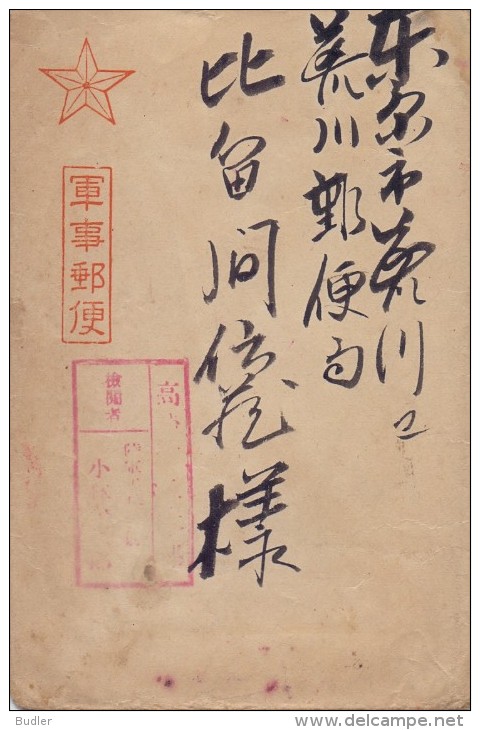 東京市荒川区
荒川郵便局
比留間信蔵様
軍事郵便
高
検閲者
小
Budler